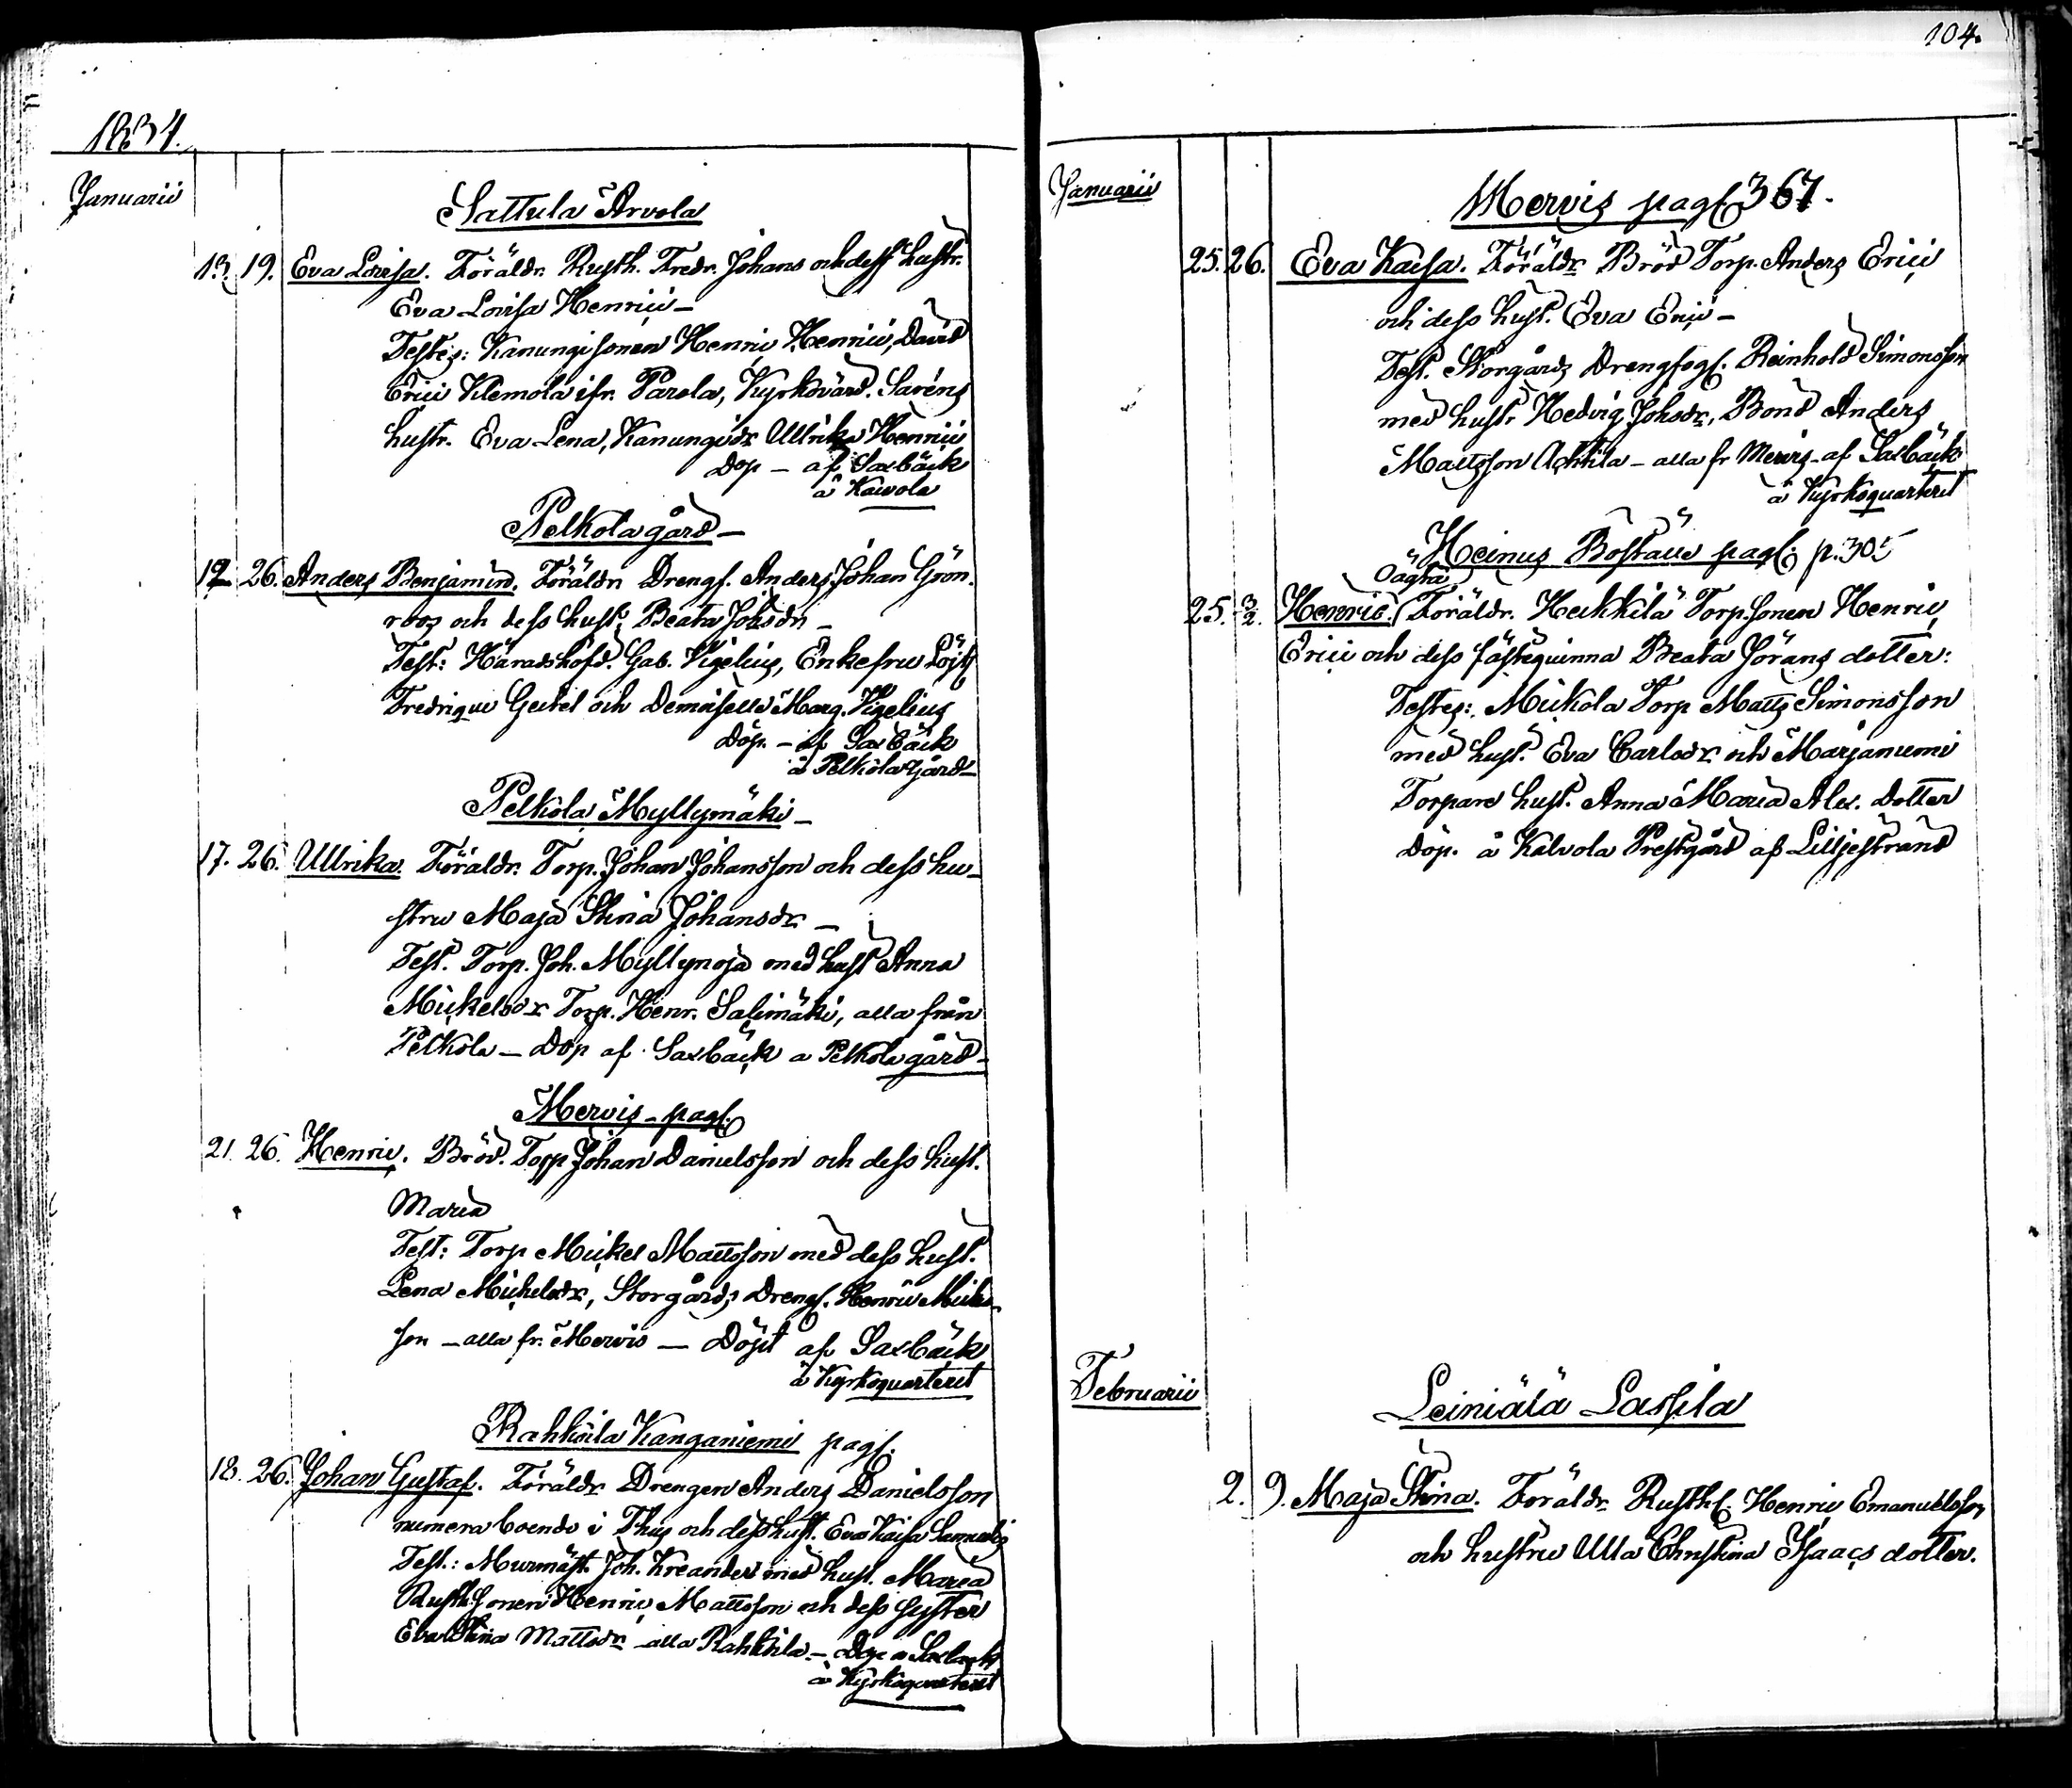 1834.
Januarii
Sattula Arvola
13. 19. Eva Lovisa. Föräldr. Rusth. Fredr. Johans och dess hustr.
Eva Lovisa Henrici —
Testes: Kanungi sonen Henric Henrici, David
Erici Klemola ifr. Parola, Kyrkovärd. Saréns
hustr. Eva Lena, Kanungi dr Ullrika Henrici
Döp — af Saxbäck
å Kaivola
Pelkola gård —
12 26. Anders Benjamin. Föräldr Drengs. Anders Johan Grön-
roos och dess hust. Beata Johsdr —
Test: Häradshöfd. Gab. Vigelius, Enkefru Löjt
Fredrique Geitel och Demoiselle Marg. Vigelius
Döp. — af Saxbäck
å Pelkola gård —
Pelkola Myllymäki —
17. 26. Ullrika. Föräldr. Torp. Johan Johansson och dess hu-
stru Maja Stina Johansdr —
Test. Torp. Joh. Myllynoja med hust Anna
Mickelsdr Torp. Henr. Salimäki, alla från
Pelkola — Döp af Saxbäck a Pelkola gård —
Mervis — pags.
21. 26. Henric. Bröd. Torp Johan Danielsson och dess hust.
Maria
Test: Torp Mickel Mattsson med dess hust.
Lena Michelsdr, Storgårds Drengs. Henric Micks-
son — alla fr. Mervis — Döpt af Saxbäck
å Kyrkoquarteret
Rahkoila Kanganiemi pags.
18. 26. Johan Gustaf. Föräldr Drengen Anders Danielsson
numera boende i Thus och dess hust. Eva Kaisa Samuels
Test.: Murmäst. Joh. Kreander med hust. Maria
Rusth Sonen Henric Mattsson och dess syster
Eva Stina Mattsdr alla Rahkoila — Döp a Saxback
å Kyrkoquarteret
104.
Januarii
Mervis pags 367.
25. 26. Eva Kaisa. Föräldr Bröd Torp. Anders Erici
och dess hust. Eva Erici —
Test. Storgårds Drengfogl. Reinhold Simonsson
med hustr Hedvig Johsdr, Bond Anders
Mattsson Achtila — alla fr Mervis — af Saxbäck
å Kyrkoquarteret
Heinus Boställe pags. p. 305
Oägta
25. 3/2. Henric. Föräldr. Heikkilä Torp. sonen Henric
Erici och dess fästequinna Beata Jörans dotter:
Testes: Mickola Torp Matts Simonsson
med hust. Eva Carlsdr och Marjaniemi
Torpare hust. Anna Maria Alex. Dotter
Döp. å Kalvola Prestgård af Lilljestrand
Februarii
Leiniälä Lassila
2. 9. Maja Stina. Föräldr Rusth. Henric Emanuelsson
och hustru Ulla Christina Isaacs dotter.